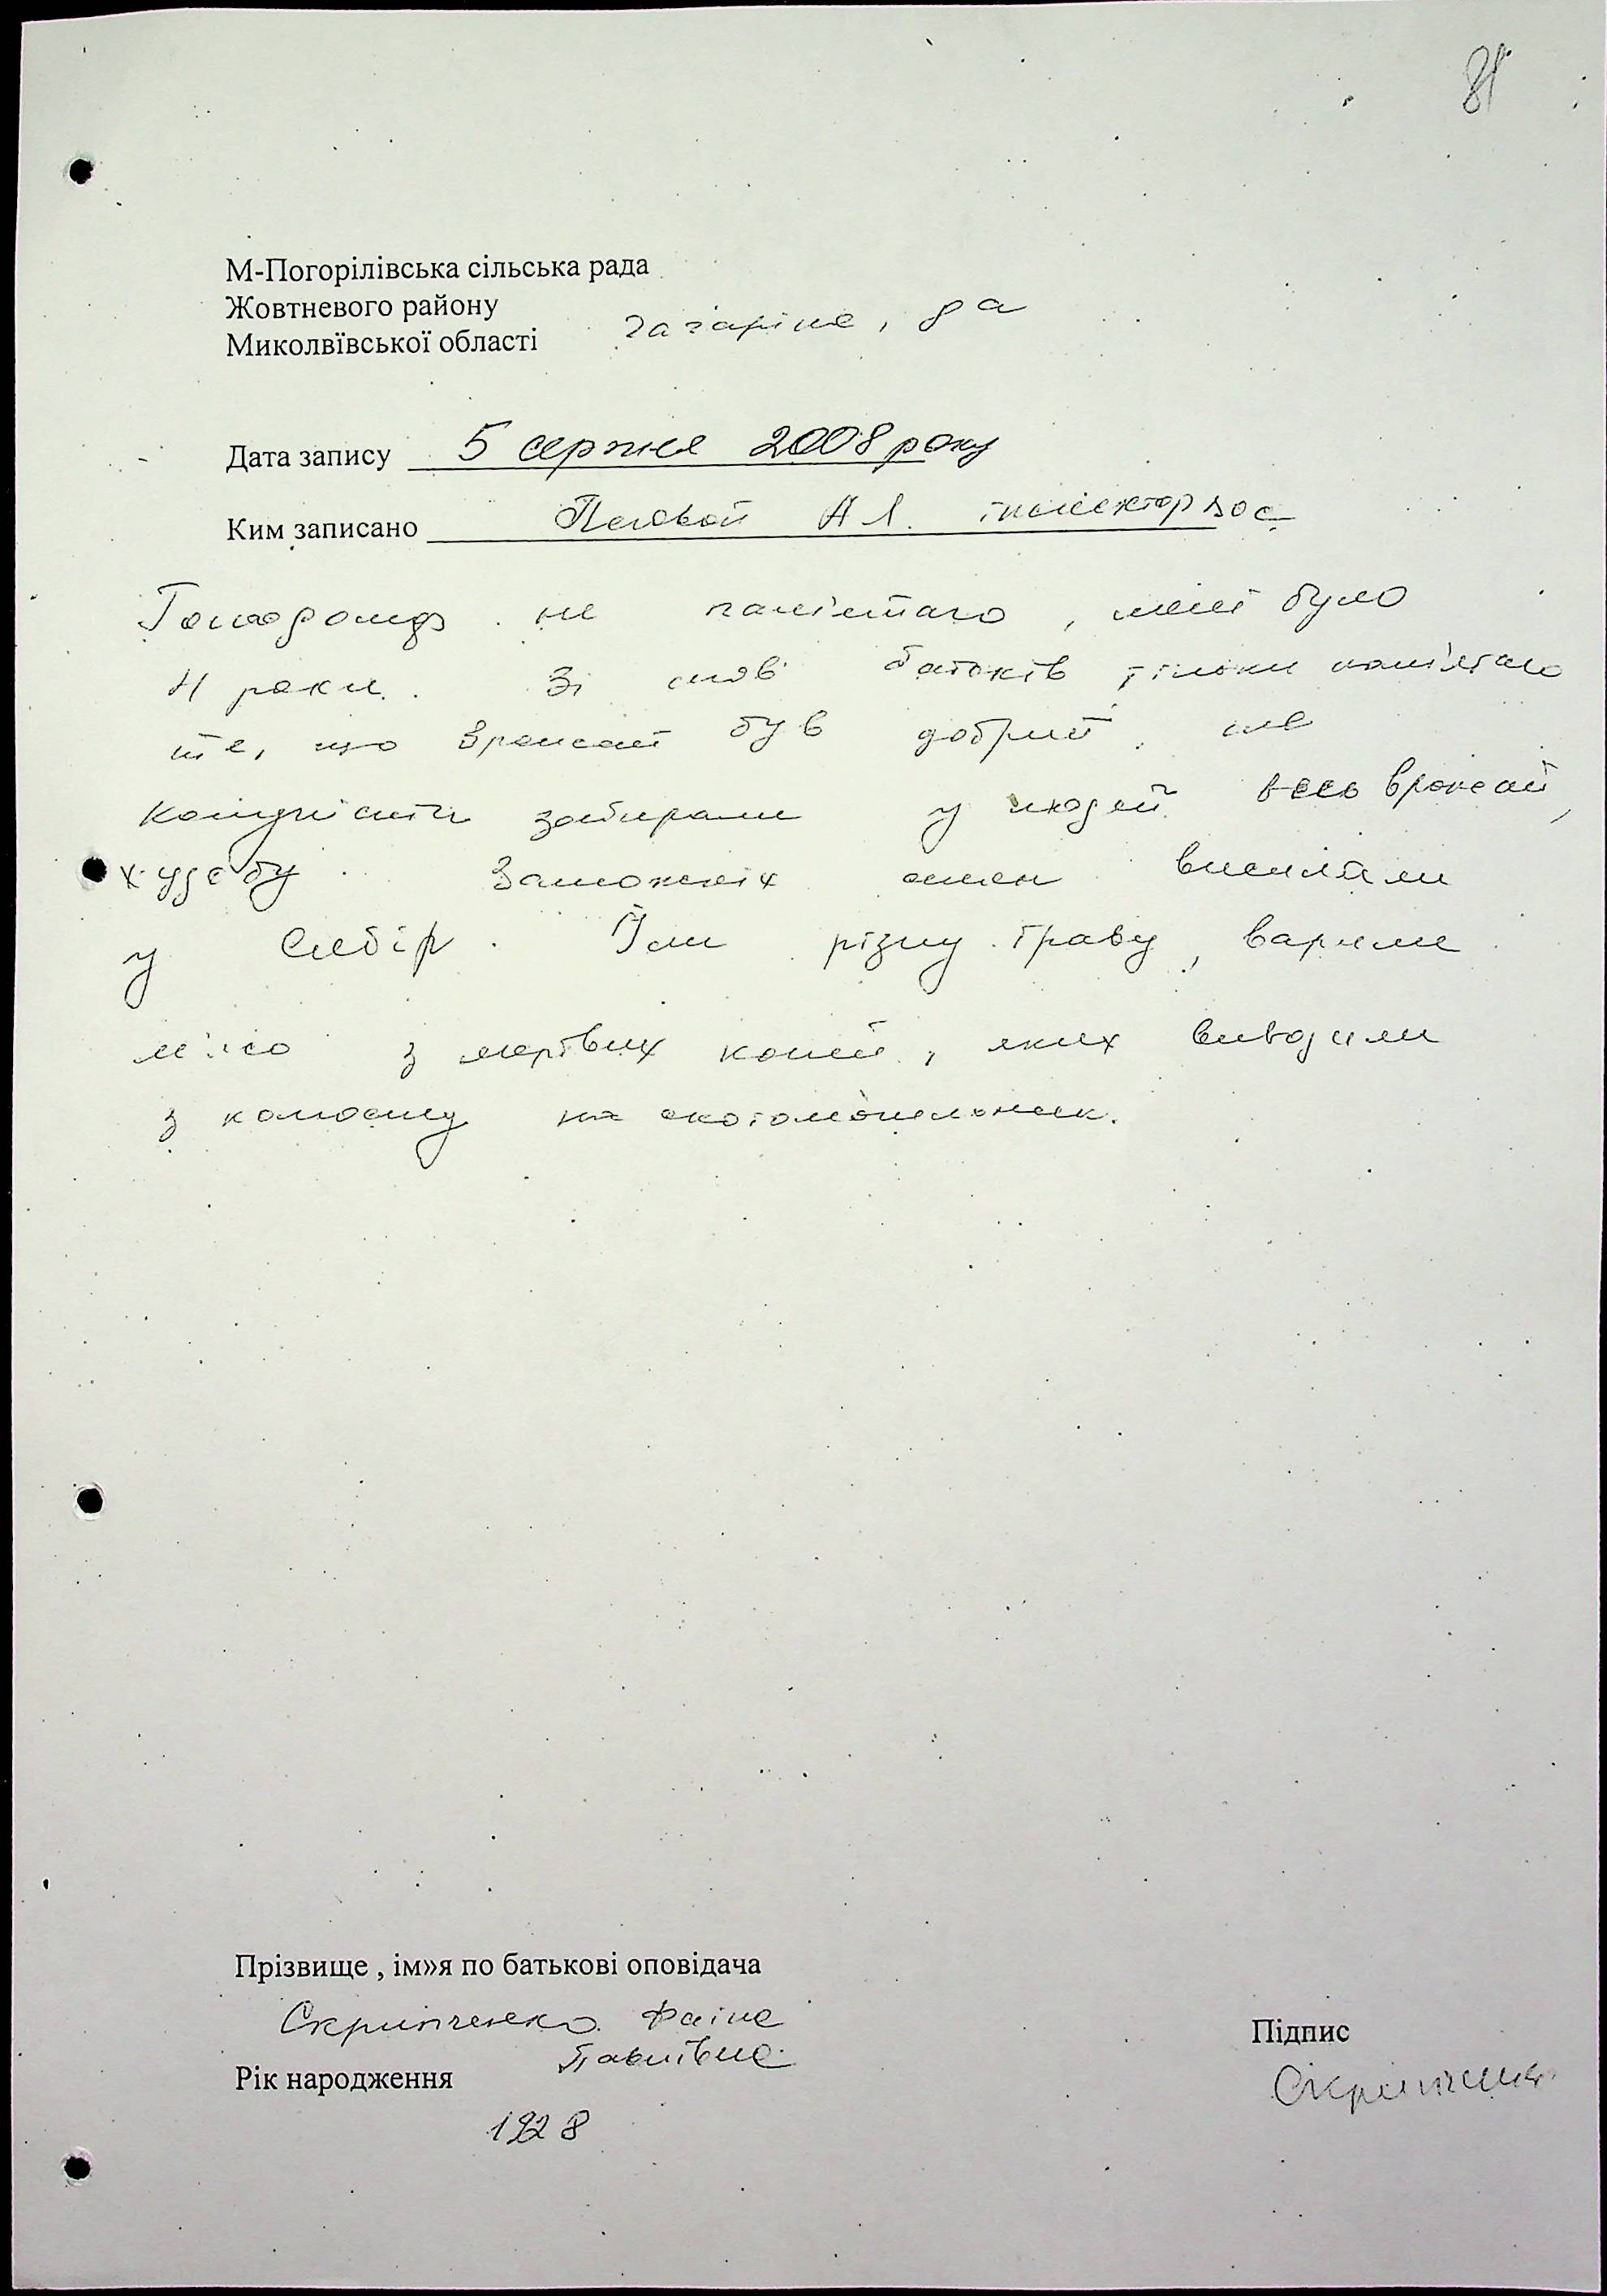 81
М-Погорілівська сільська рада
Жовтневого району
Миколвївської області
Гагаріна, 8а
Дата запису 5 серпня 2008 року
Ким записано А Л. інспектор ВОС
Голодомор не пам'ятаю, мені було
4 роки. Зі слів батьків тільки пам'ятаю
те, що врожай був добрий, але
комуністи забирали у людей весь врожай,
худобу. Заможніх висиляли
у Сибір. Їли різну траву, варили
м'ясо з мертвих коней, яких вивозили
з колгоспу на скотомогильник.
Прізвище , ім»я по батькові оповідача
Скрипченко Фаіна
Павлівна
Підпис
Рік народження
1928